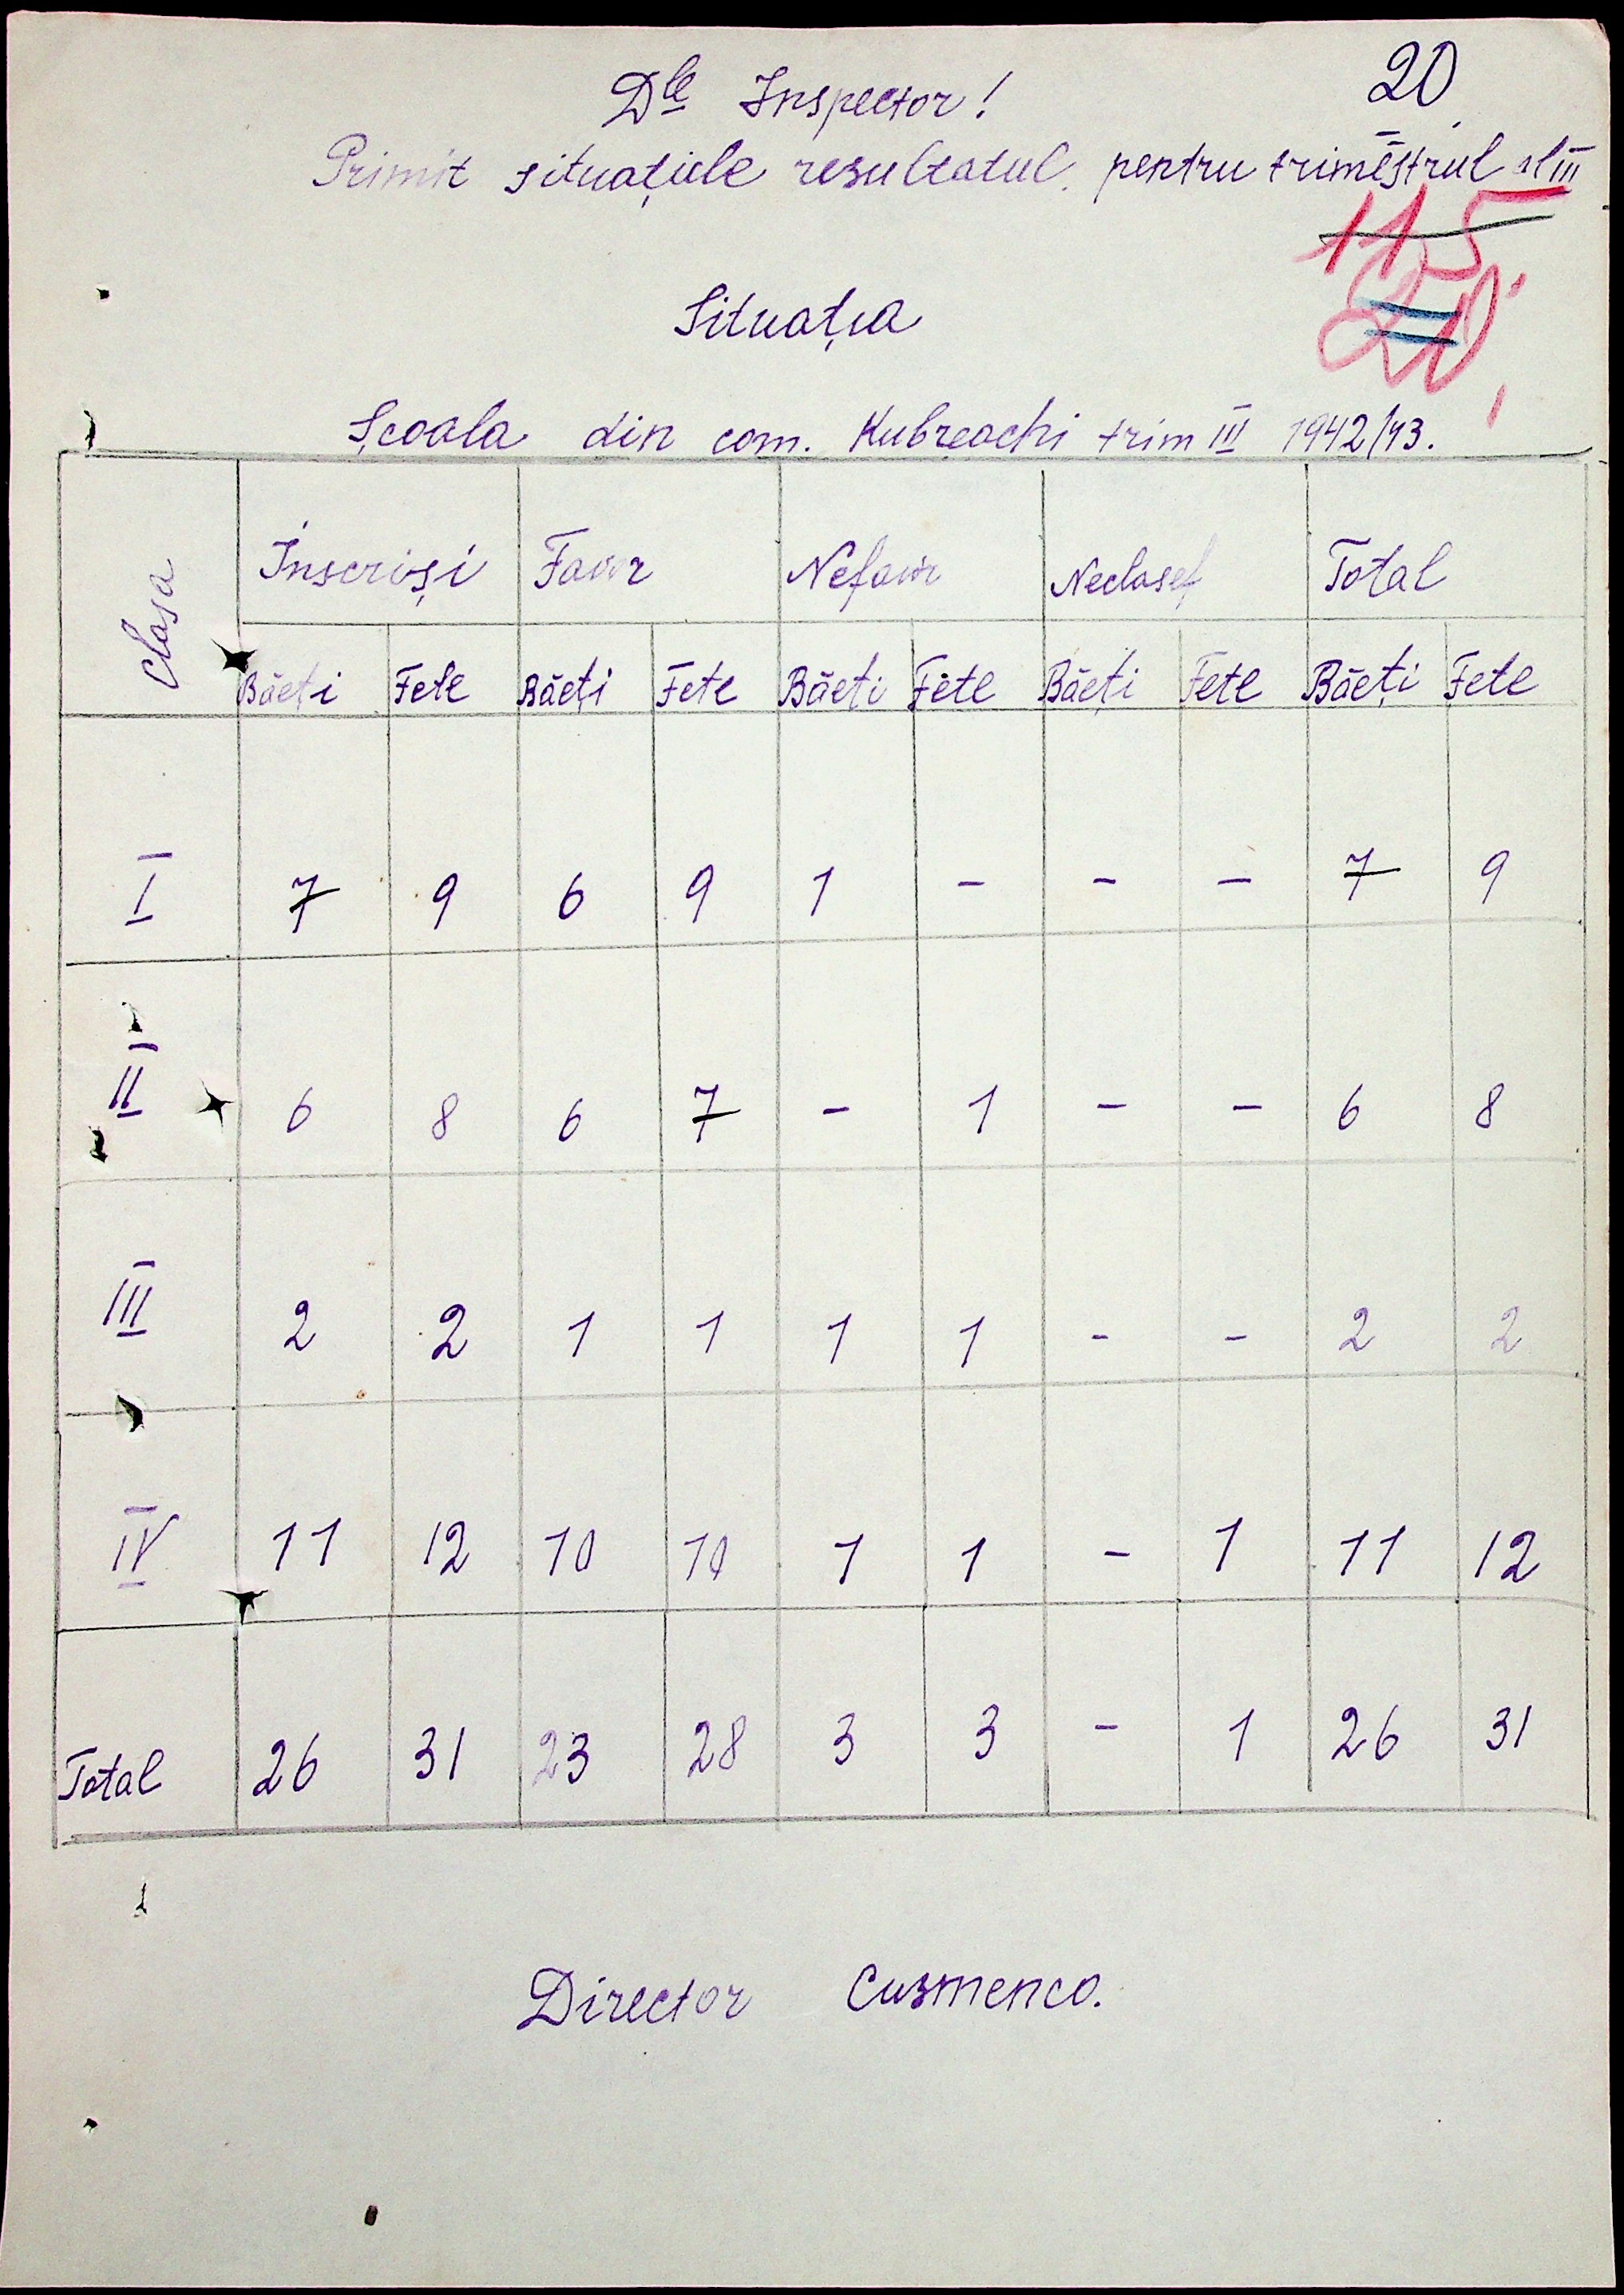 20
Dle Inspector!
Primit situațiile resultatul pentru trimestrul al III
115
20
Situația
Școala din com. Kubreachi trim III 1942/43.
Clasa Inscrişi Favor Nefavor Neclasef Total
Băeți Fete Băeți Fete Băeți Fete Băeți Fete Băeți Fete
I 7 9 6 9 1 - - - 7 9
II 6 8 6 7 - 1 - - 6 8
III 2 2 1 1 1 1 - - 2 2
IV 11 12 10 10 1 1 - 1 11 12
Total 26 31 23 28 3 3 - 1 26 31
Director Cusmenco.